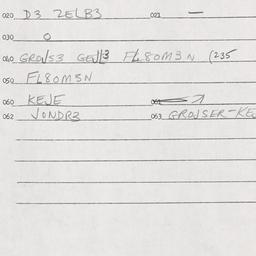 020. D3 ZELB3 021. —
030. O
040. GROJS3 GEJL3 FL8OM3N (235
050. FL8OM3N
060. KEJE 061.
062. JONDR3 063. GROJSER-KEJ